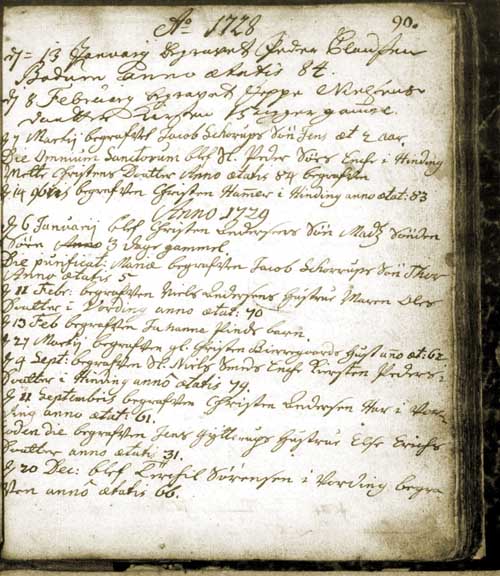 Ao 1728
90.
d 13 Januarij begravet Peder Clausen
Bodum anno ætatis 84.
d 8 Februarij begravet Jeppe Nielsens
daatter Kirsten
d 7 Martij begrafvet Jacob Schorups Søn Jens æt 2 aar.
Die Omnium Sanctorum blef Sl. Peder Sørs Enche i Hinding
Mette Christens Daatter Anno ætatis 84 begrafven
begrafven Christen Hamer i Hinding anno ætat: 83
Anno 1729
d 6 Januarij blef Christen Andersens Søn Madz
Søren Anno 3 Dage gammel.
Die purificat: Mariæ begrafven Jacob Schorrups Søn Thor
Anno ætatis 5
d 11 Febr: begrafven Niels Andersens Hustrue Maren Oles
Daatter i Vording anno ætat: 70
d 13 Feb begrafven Johanna Pinds barn.
d 27 Martij begrafven gl. Christen Bierregaards Hust año æt: 62
d 4 Sept: begrafven Sl. Niels Smeds Enche Kiersten Peders
Daatter i Hinding anno ætatis 79.
d 11 Septembris begrafven Christen Andersen Har i Vor
ding anno ætat: 61.
eodem die begrafven Jens Gyttrups Hustrue Else Erichs
Daatter anno ætatis 31.
d 20 Dec: blef Terchil Sørensen i Vording begra
fven anno ætatis 66.